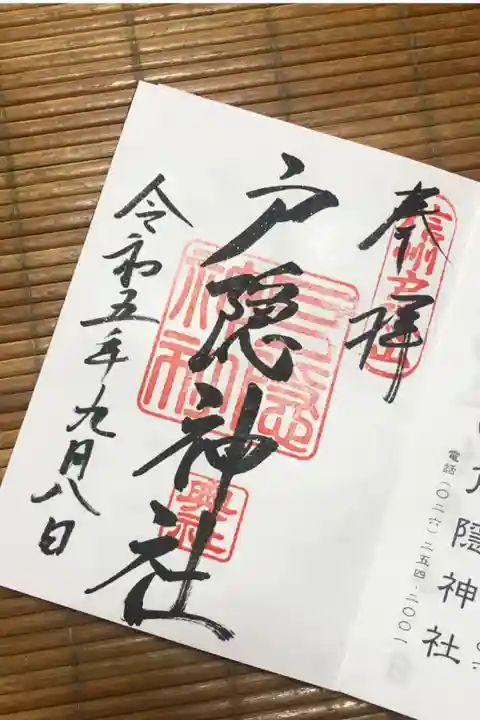 奉拝
信州戸隠山
戸隠神社
奥社
令和五年九月八日
戸隠神社
電話(〇二六)二五四・二〇〇一